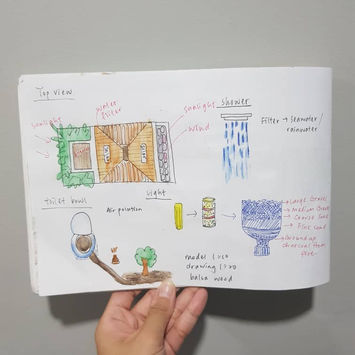 Top view
water
filter
sunlight
shower
sunlight
wind
Filter → seawater /
rainwater
toilet bowl
Air polution
Light
Large Gravel
Medium Gravel
Coarse Sand
Fine sand
Ground up
charcoal from
fire
model 1:50
drawing 1:20
balsa wood